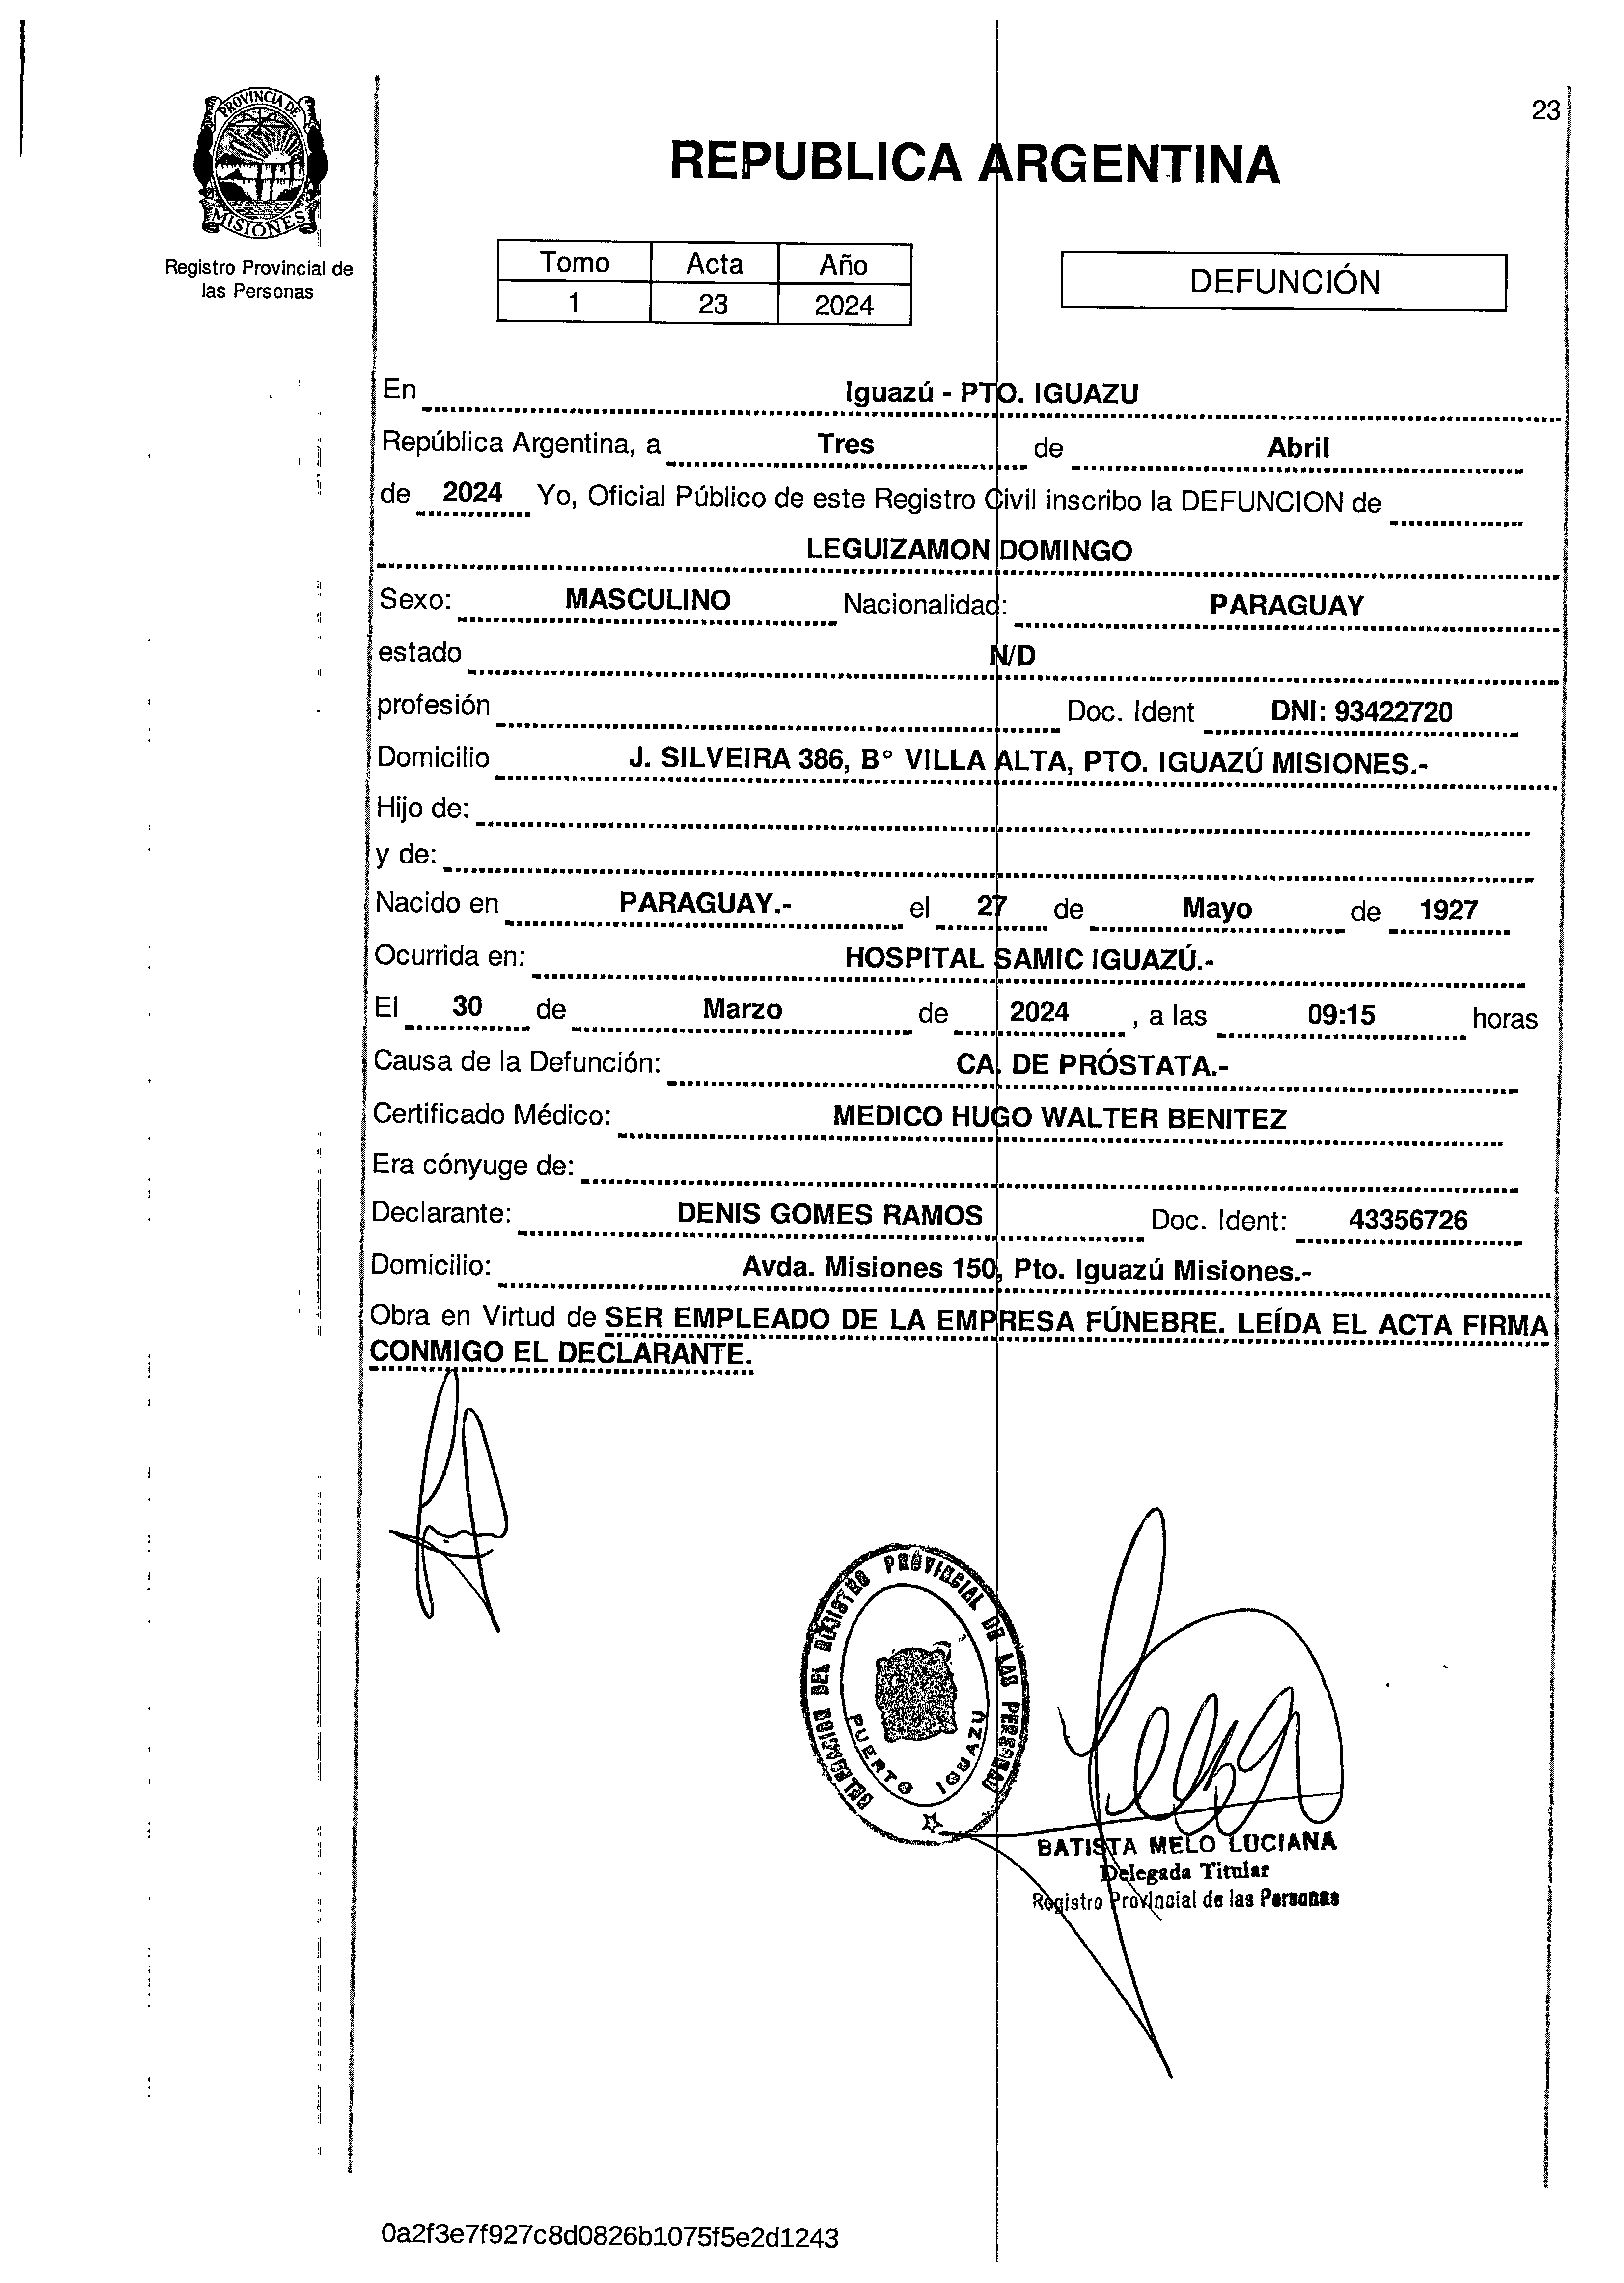 23
PROVINCIA DE
MISIONES
Registro Provincial de
las Personas
REPUBLICA ARGENTINA
Tomo Acta Año
1 23 2024
DEFUNCIÓN
En Iguazú - PTO. IGUAZU
República Argentina, a Tres de Abril
de 2024 Yo, Oficial Público de este Registro Civil inscribo la DEFUNCION de
LEGUIZAMON DOMINGO
Sexo: MASCULINO Nacionalidad: PARAGUAY
estado N/D
profesión Doc. Ident DNI: 93422720
Domicilio J. SILVEIRA 386, B° VILLA ALTA, PTO. IGUAZÚ MISIONES.-
Hijo de:
y de:
Nacido en PARAGUAY.- el 27 de Mayo de 1927
Ocurrida en: HOSPITAL SAMIC IGUAZÚ.-
El 30 de Marzo de 2024 , a las 09:15 horas
Causa de la Defunción: CA. DE PRÓSTATA.-
Certificado Médico: MEDICO HUGO WALTER BENITEZ
Era cónyuge de:
Declarante: DENIS GOMES RAMOS Doc. Ident: 43356726
Domicilio: Avda. Misiones 150, Pto. Iguazú Misiones.-
Obra en Virtud de SER EMPLEADO DE LA EMPRESA FÚNEBRE. LEÍDA EL ACTA FIRMA
CONMIGO EL DECLARANTE.
DELEGACION DEL REGISTRO PROVINCIAL DE LAS PERSONAS
PUERTO IGUAZU
BATISTA MELO LUCIANA
Delegada Titular
Registro Provincial de las Personas
0a2f3e7f927c8d0826b1075f5e2d1243